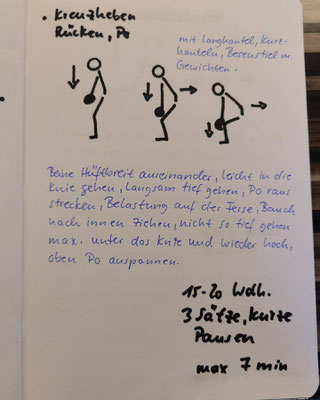 • Kreuzheben
Rücken, Po
mit Langhantel, Kurz-
hanteln, Besenstiel m.
Gewichten.
Beine Hüftbreit auseinander, leicht in die
Knie gehen, Langsam tief gehen, Po raus
strecken, Belastung auf der Ferse, Bauch
nach innen ziehen, nicht so tief gehen
max. unter das Knie und wieder hoch,
oben Po anspannen.
15-20 Wdh.
3 Sätze, kurze
Pausen
max 7 min